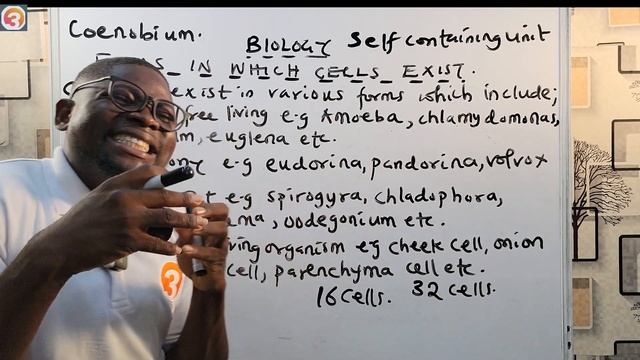 3
Coenobium.
BIOLOGY Self containing unit
IN WHICH CELLS EXIST.
exist in various forms which include;
free living e.g Amoeba, chlamydomonas,
m, euglena etc.
ony e.g eudorina, pandorina, volvox
t e.g spirogyra, chladophora,
ama, oodegonium etc.
ving organism e.g cheek cell, onion
cell, parenchyma cell etc.
16 cells. 32 cells.
3